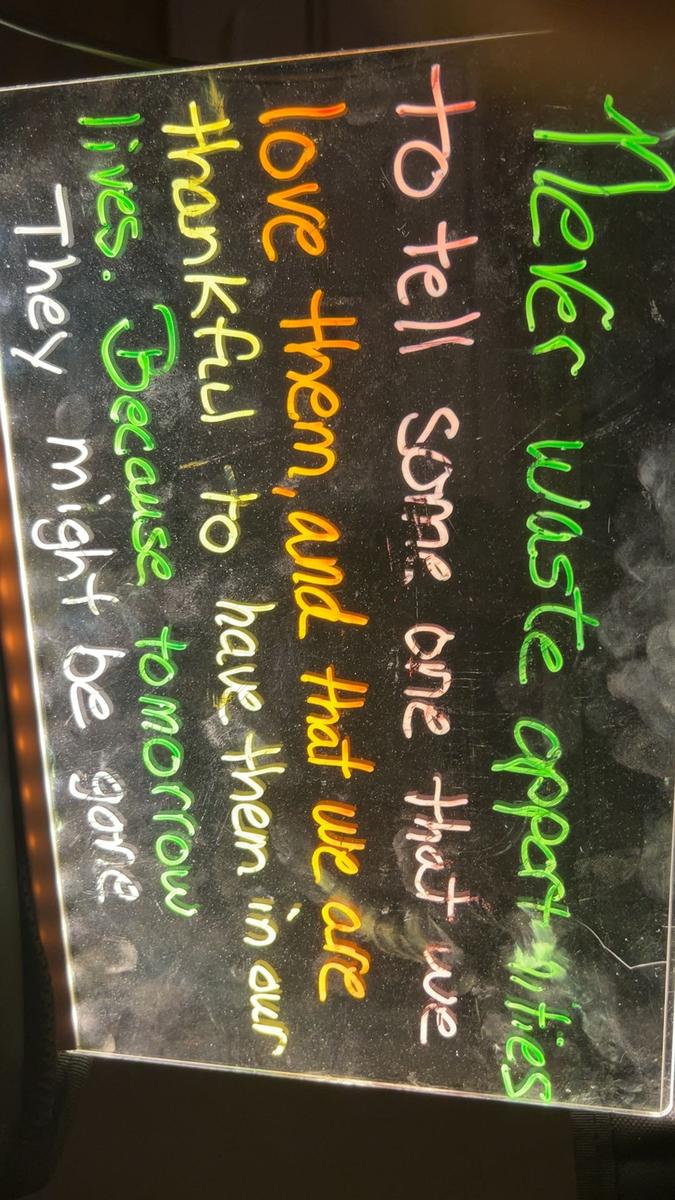 Never waste opportunities
to tell some one that we
love them, and that we are
thankful to have them in our
lives. Because tomorrow
They might be gone